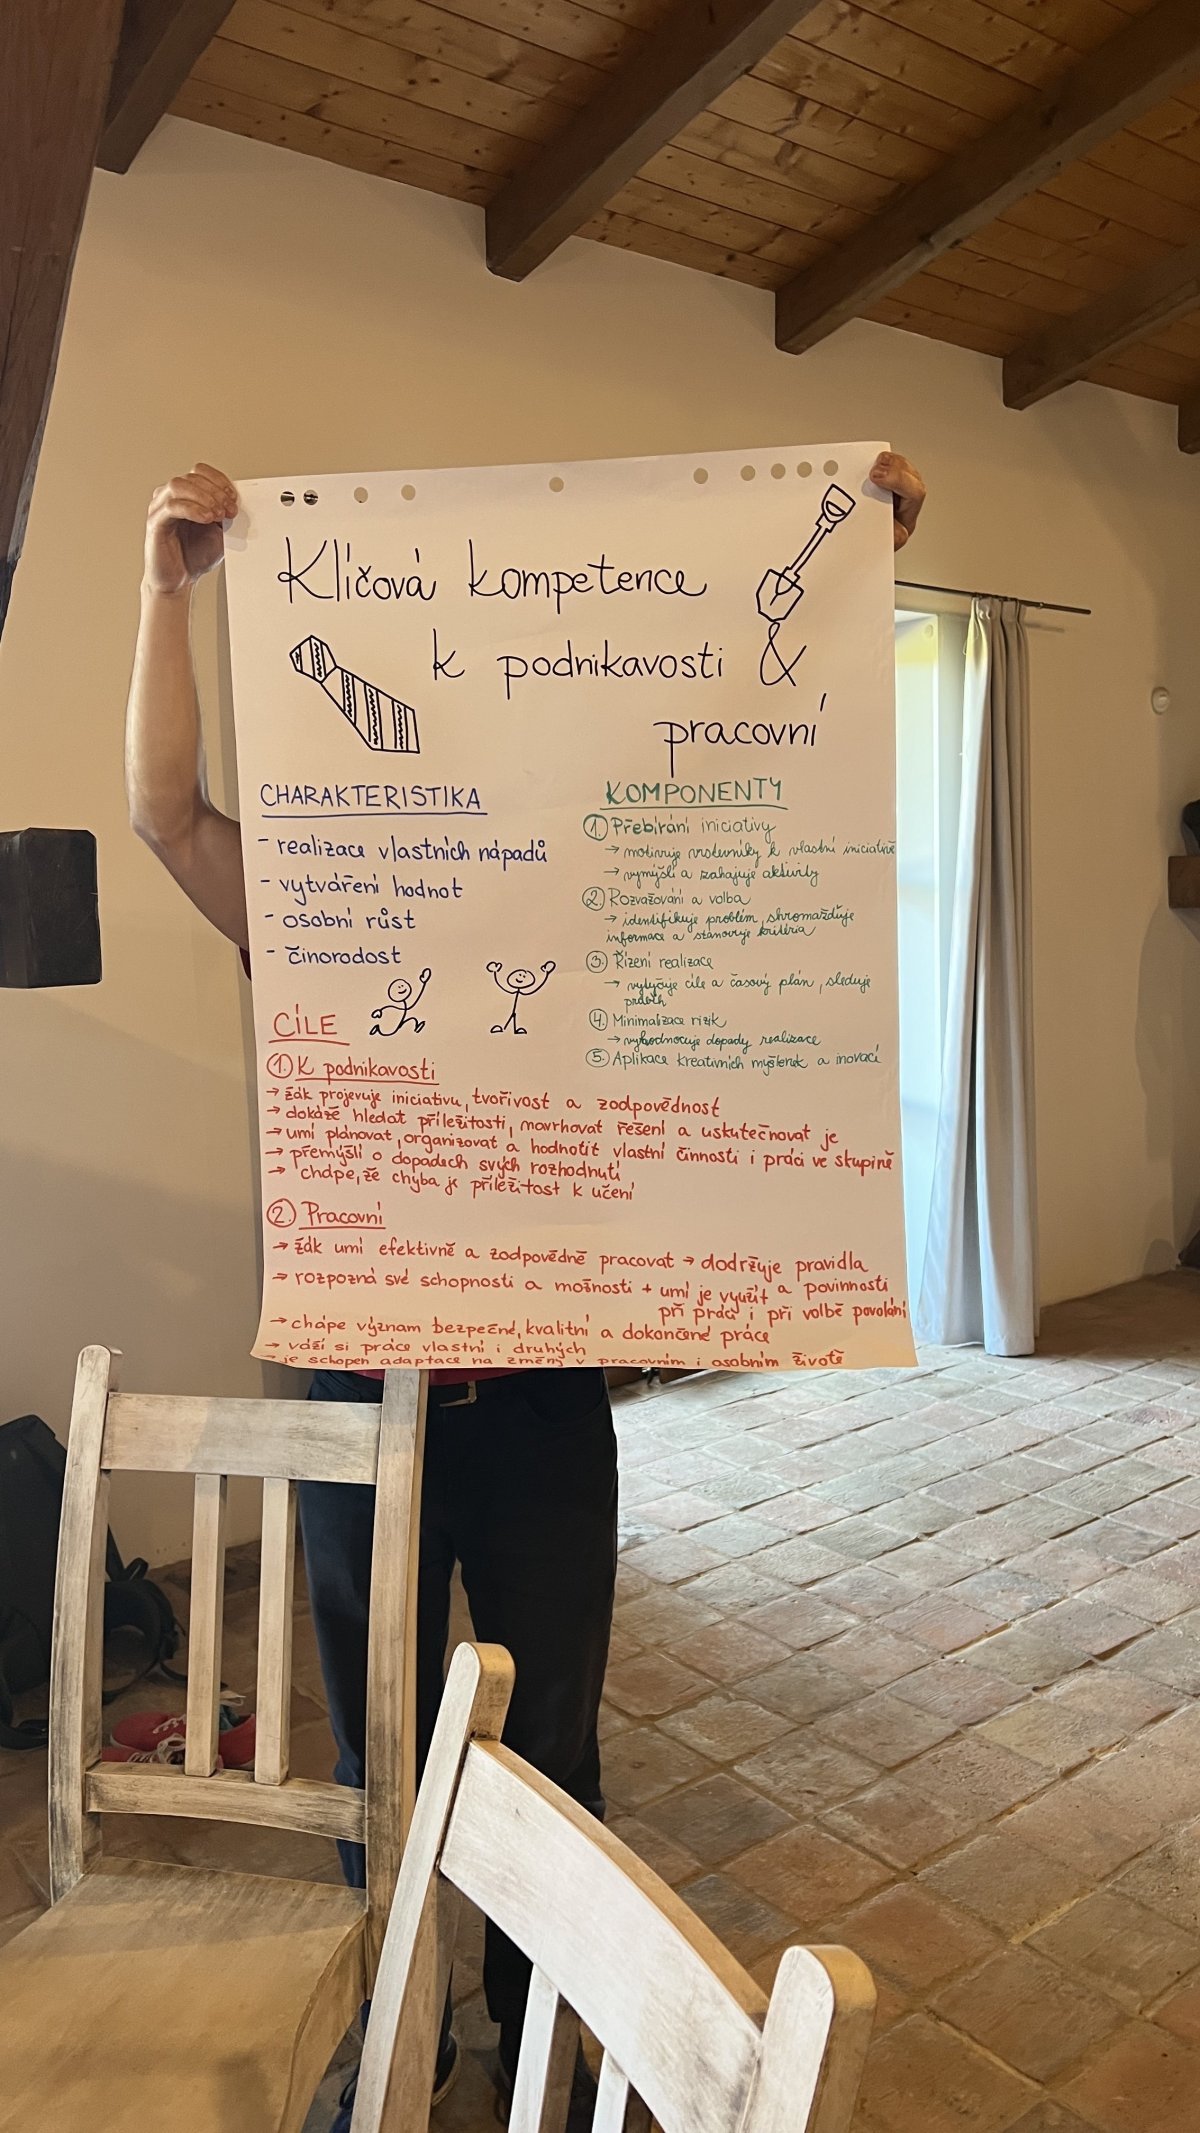 Klíčová kompetence
k podnikavosti &
pracovní
CHARAKTERISTIKA
- realizace vlastních nápadů
- vytváření hodnot
- osobní růst
- činorodost
KOMPONENTY
1. Přebírání iniciativy
→ motivuje vrstevníky k vlastní iniciativě
→ vymýšlí a zahajuje aktivity
2. Rozvažování a volba
→ identifikuje problém, shromažďuje
informace a stanovuje kritéria
3. Řízení realizace
→ vytyčuje cíle a časový plán, sleduje
průběh
4. Minimalizace rizik
→ vyhodnocuje dopady realizace
5. Aplikace kreativních myšlenek a inovací
CÍLE
1. K podnikavosti
→ žák projevuje iniciativu, tvořivost a zodpovědnost
→ dokáže hledat příležitosti, navrhovat řešení a uskutečňovat je
→ umí plánovat, organizovat a hodnotit vlastní činnosti i práci ve skupině
→ přemýšlí o dopadech svých rozhodnutí
→ chápe, že chyba je příležitost k učení
2. Pracovní
→ žák umí efektivně a zodpovědně pracovat → dodržuje pravidla
→ rozpozná své schopnosti a možnosti + umí je využít a povinnosti
při práci i při volbě povolání
→ chápe význam bezpečné, kvalitní a dokončené práce
→ váží si práce vlastní i druhých
→ je schopen adaptace na změny v pracovním i osobním životě